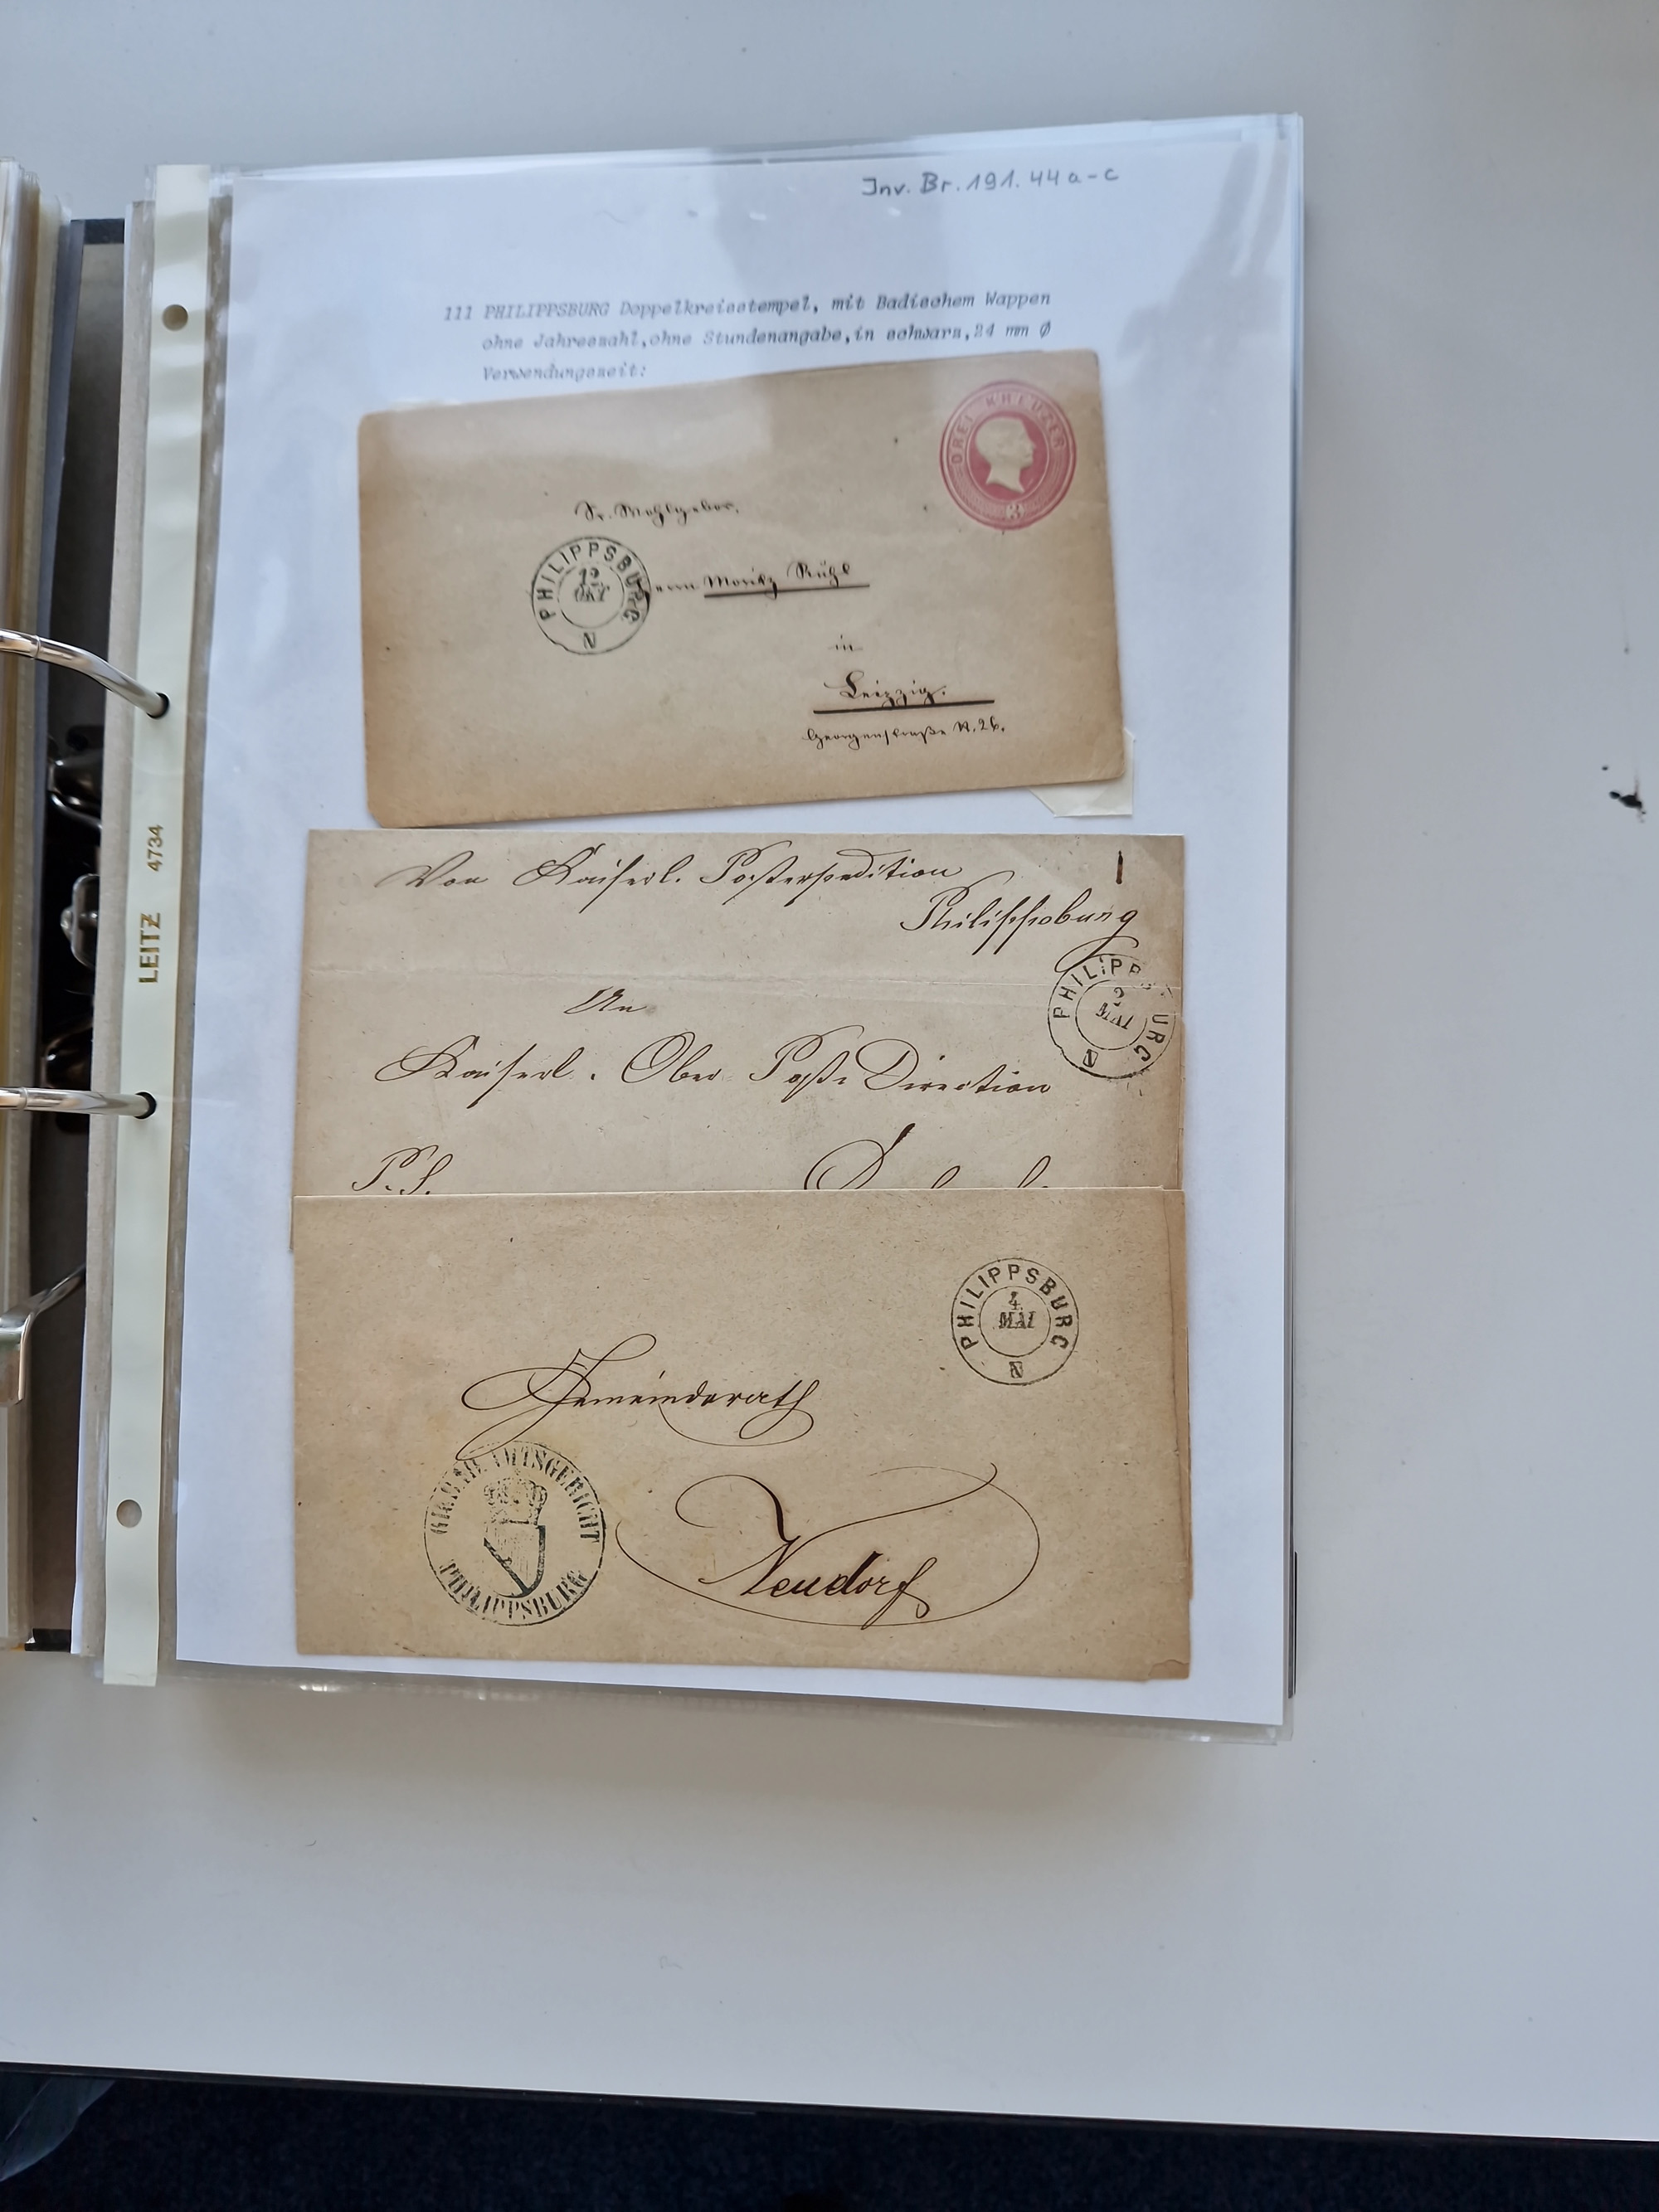 Inv. Br. 191. 44 a-c
111 PHILIPPSBURG Doppelkreisstempel, mit Badischem Wappen
ohne Jahreszahl, ohne Stundenangabe, in schwarz, 24 mm Ø
Verwendungszeit:
DREI KREUZER
3
Sr. Wohlgebor.
PHILIPPSBURG
12
OKT
Herrn Moritz Rühl
in
Leipzig.
Georgenstraße N. 26.
Von Kaiserl. Postexpedition
Philippsburg
PHILIPPSBURG
2
MAI
An
Kaiserl. Ober Post-Direction
P. S.
PHILIPPSBURG
4.
MAI
Gemeinderath
GROSH. AMTSGERICHT
PHILIPPSBURG
Neudorf
LEITZ 4734